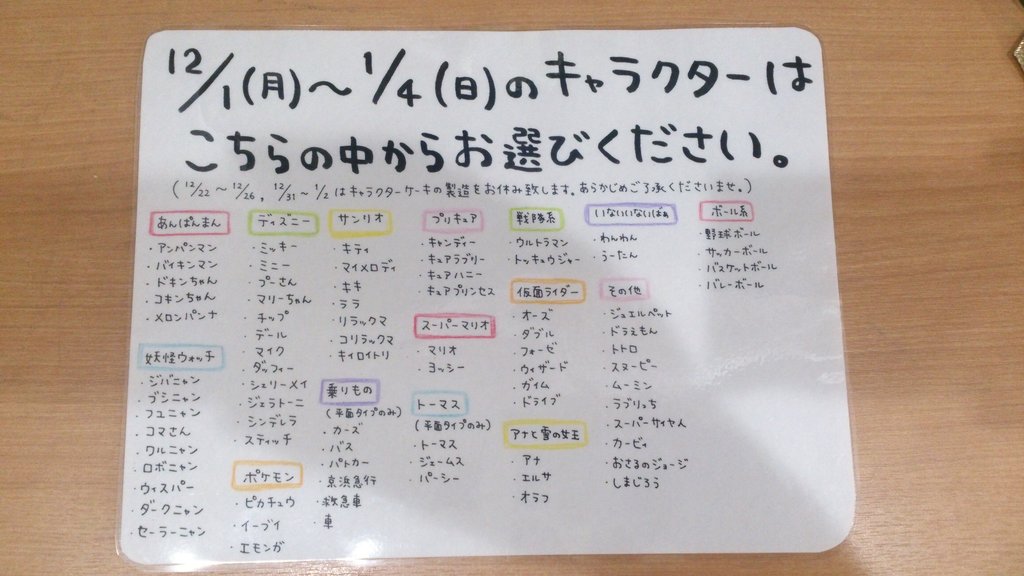 12/1(月)〜1/4(日)のキャラクターは
こちらの中からお選びください。
(12/22〜12/26, 12/31〜1/2はキャラクターケーキの製造をお休み致します。あらかじめご了承くださいませ。)
あんぱんまん
・アンパンマン
・バイキンマン
・ドキンちゃん
・コキンちゃん
・メロンパンナ
妖怪ウォッチ
・ジバニャン
・ブシニャン
・フユニャン
・コマさん
・ワルニャン
・ロボニャン
・ウィスパー
・ダークニャン
・セーラーニャン
ディズニー
・ミッキー
・ミニー
・プーさん
・マリーちゃん
・チップ
・デール
・マイク
・ダッフィー
・シェリーメイ
・ジェラトーニ
・シンデレラ
・スティッチ
ポケモン
・ピカチュウ
・イーブイ
・エモンガ
サンリオ
・キティ
・マイメロディ
・キキ
・ララ
・リラックマ
・コリラックマ
・キイロイトリ
乗りもの
(平面タイプのみ)
・カーズ
・バス
・パトカー
・京浜急行
・救急車
・車
プリキュア
・キャンディー
・キュアラブリー
・キュアハニー
・キュアプリンセス
スーパーマリオ
・マリオ
・ヨッシー
トーマス
(平面タイプのみ)
・トーマス
・ジェームス
・パーシー
戦隊系
・ウルトラマン
・トッキュウジャー
仮面ライダー
・オーズ
・ダブル
・フォーゼ
・ウィザード
・ガイム
・ドライブ
アナと雪の女王
・アナ
・エルサ
・オラフ
いないいないばぁ
・わんわん
・うーたん
その他
・ジュエルペット
・ドラえもん
・トトロ
・スヌーピー
・ムーミン
・ラブリっち
・スーパーサイヤ人
・カービィ
・おさるのジョージ
・しまじろう
ボール系
・野球ボール
・サッカーボール
・バスケットボール
・バレーボール